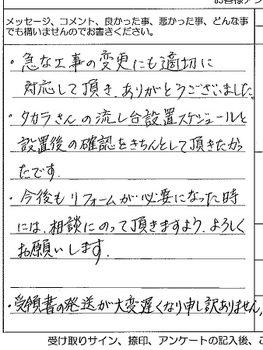 メッセージ、コメント、良かった事、悪かった事、どんな事
でも構いませんのでお書きください。
・急な工事の変更にも適切に
対応して頂き、ありがとうございました
・タカラさんの流し台設置スケジュールと
設置後の確認をきちんとして頂きたかっ
たです。
・今後もリフォームが必要になった時
には、相談にのって頂きますよう、よろしく
お願いします。
・受領書の発送が大変遅くなり申し訳ありません。
受け取りサイン、捺印、アンケートの記入後、